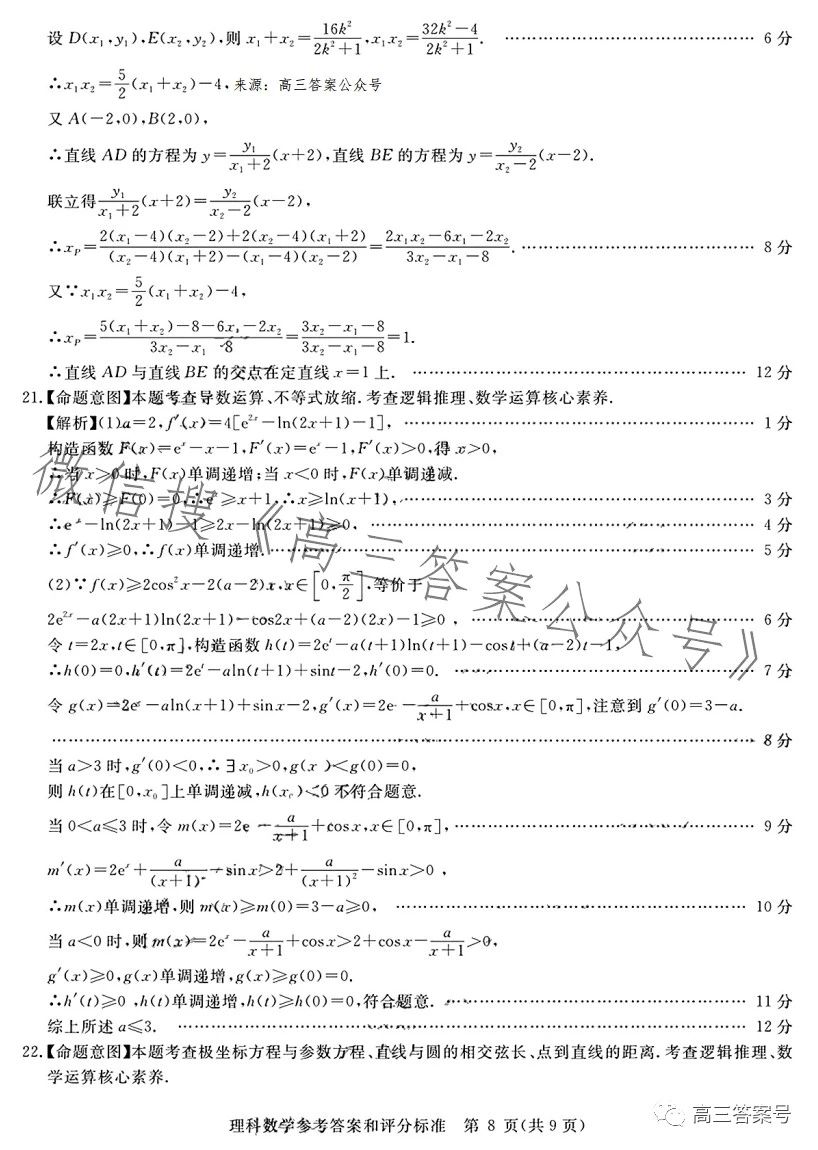 设 D(x₁,y₁),E(x₂,y₂),则 x₁+x₂=16k²/(2k²+1),x₁x₂=(32k²-4)/(2k²+1). …… 6 分
∴x₁x₂=5/2(x₁+x₂)-4,来源：高三答案公众号
又 A(-2,0),B(2,0),
∴直线 AD 的方程为 y=y₁/(x₁+2)(x+2),直线 BE 的方程为 y=y₂/(x₂-2)(x-2).
联立得 y₁/(x₁+2)(x+2)=y₂/(x₂-2)(x-2),
∴x_P=[2(x₁-4)(x₂-2)+2(x₂-4)(x₁+2)]/[(x₂-4)(x₁+2)-(x₁-4)(x₂-2)]=(2x₁x₂-6x₁-2x₂)/(3x₂-x₁-8). …… 8 分
又∵x₁x₂=5/2(x₁+x₂)-4,
∴x_P=[5(x₁+x₂)-8-6x₁-2x₂]/(3x₂-x₁ 8)=(3x₂-x₁-8)/(3x₂-x₁-8)=1.
∴直线 AD 与直线 BE 的交点在定直线 x=1 上. …… 12 分
21.【命题意图】本题考查导数运算、不等式放缩.考查逻辑推理、数学运算核心素养.
【解析】(1)a=2,f′(x)=4[e²ˣ-ln(2x+1)-1], …… 1 分
构造函数 F(x)=eˣ-x-1,F′(x)=eˣ-1,F′(x)>0,得 x>0,
∴当 x>0 时,F(x)单调递增;当 x<0 时,F(x)单调递减.
∴F(x)≥F(0)=0,∴eˣ≥x+1,∴x≥ln(x+1), …… 3 分
∴e²ˣ-ln(2x+1)-1≥2x-ln(2x+1)≥0, …… 4 分
∴f′(x)≥0,∴f(x)单调递增. …… 5 分
(2)∵f(x)≥2cos²x-2(a-2)x,x∈[0,π/2],等价于
2e²ˣ-a(2x+1)ln(2x+1)-cos2x+(a-2)(2x)-1≥0 , …… 6 分
令 t=2x,t∈[0,π],构造函数 h(t)=2eᵗ-a(t+1)ln(t+1)-cost+(a-2)t-1,
∴h(0)=0,h′(t)=2eᵗ-aln(t+1)+sint-2,h′(0)=0. …… 7 分
令 g(x)=2eˣ-aln(x+1)+sinx-2,g′(x)=2e -a/(x+1)+cosx,x∈[0,π],注意到 g′(0)=3-a.
…… 8 分
当 a>3 时,g′(0)<0,∴∃x₀>0,g(x )<g(0)=0,
则 h(t)在[0,x₀]上单调递减,h(x₀)<0 不符合题意.
当 0<a≤3 时,令 m(x)=2e -a/(x+1)+cosx,x∈[0,π], …… 9 分
m′(x)=2eˣ+a/(x+1)²-sinx>2+a/(x+1)²-sinx>0 ,
∴m(x)单调递增,则 m(x)≥m(0)=3-a≥0, …… 10 分
当 a<0 时,则 m(x)=2eˣ-a/(x+1)+cosx>2+cosx-a/(x+1)>0,
g′(x)≥0,g(x)单调递增,g(x)≥g(0)=0.
∴h′(t)≥0 ,h(t)单调递增,h(t)≥h(0)=0,符合题意. …… 11 分
综上所述 a≤3. …… 12 分
22.【命题意图】本题考查极坐标方程与参数方程、直线与圆的相交弦长、点到直线的距离.考查逻辑推理、数
学运算核心素养.
微信搜《高三答案公众号》
高三答案号
理科数学参考答案和评分标准 第 8 页(共 9 页)